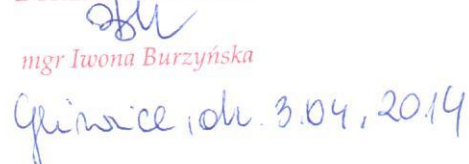 mgr Iwona Burzyńska
Gliwice, dn. 3.04.2014